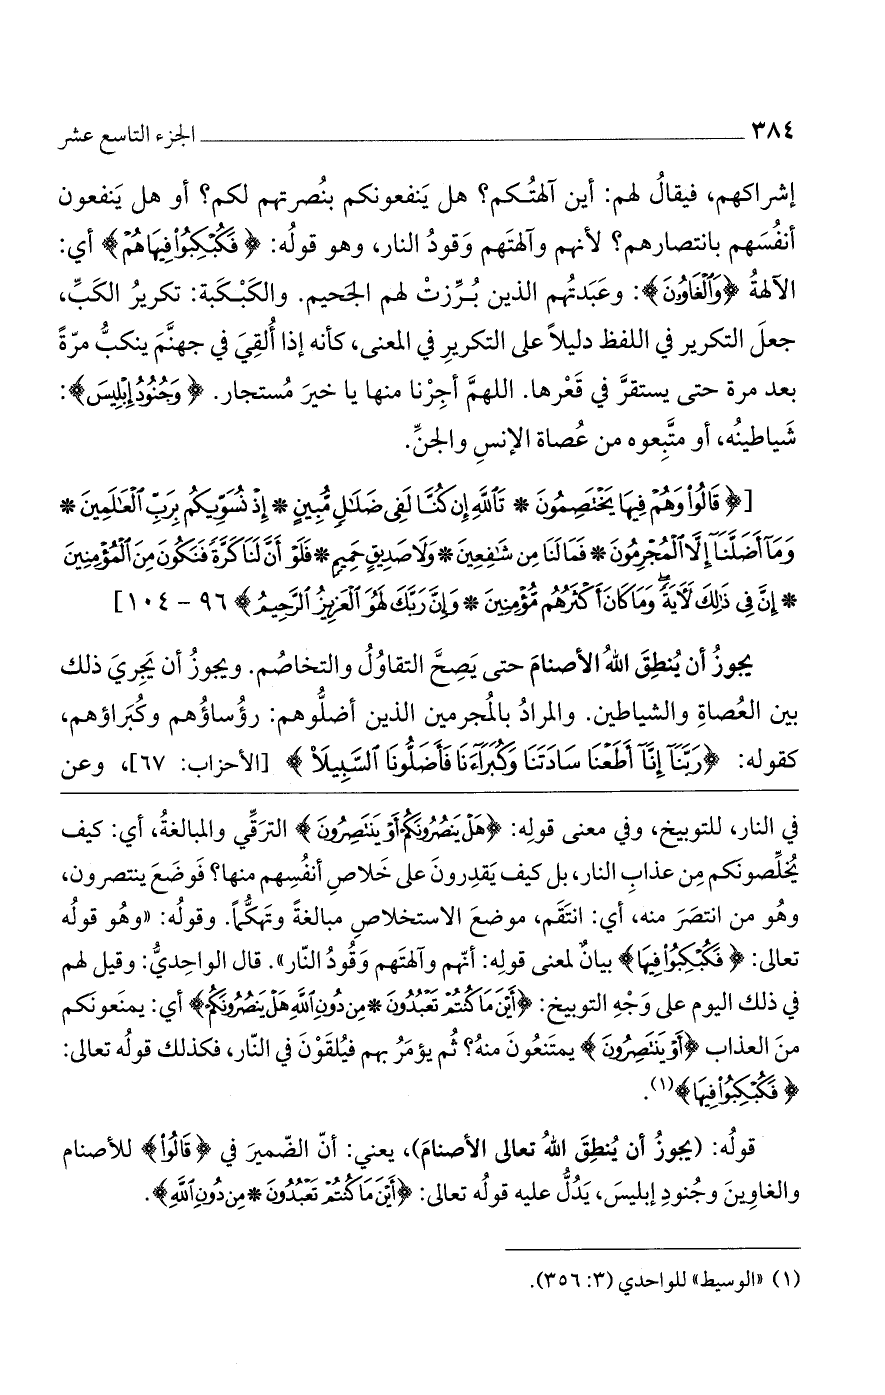 ٣٨٤ ــــــــــــــــــــــــــــــــــــــــ الجزء التاسع عشر
إشراكهم، فيقالُ لهم: أين آلهتُـكم؟ هل يَنفعونكم بنُصرتهم لكم؟ أو هل يَنفعون
أنفُسَهم بانتصارهم؟ لأنهم وآلهتَهم وَقودُ النار، وهو قولُه: ﴿فَكُبْكِبُوا۟ فِيهَا هُمْ﴾ أي:
الآلهةُ ﴿وَٱلْغَاوُۥنَ﴾: وعَبَدتُهم الذين بُـرِّزتْ لهم الجَحيم. والكَبْـكَبة: تكريرُ الكَبِّ،
جعلَ التكرير في اللفظ دليلاً على التكريرِ في المعنى، كأنه إذا أُلقِيَ في جهنَّمَ ينكبُّ مرّةً
بعد مرة حتى يستقرَّ في قَعْرها. اللهمَّ أجِرْنا منها يا خيرَ مُستجار. ﴿وَجُنُودُ إِبْلِيسَ﴾:
شَياطينُه، أو متَّبِعوه من عُصاة الإنسِ والجنِّ.
[﴿قَالُوا۟ وَهُمْ فِيهَا يَخْتَصِمُونَ * تَٱللَّهِ إِن كُنَّا لَفِى ضَلَٰلٍ مُّبِينٍ * إِذْ نُسَوِّيكُم بِرَبِّ ٱلْعَٰلَمِينَ *
وَمَآ أَضَلَّنَآ إِلَّا ٱلْمُجْرِمُونَ * فَمَا لَنَا مِن شَٰفِعِينَ * وَلَا صَدِيقٍ حَمِيمٍ * فَلَوْ أَنَّ لَنَا كَرَّةً فَنَكُونَ مِنَ ٱلْمُؤْمِنِينَ
* إِنَّ فِى ذَٰلِكَ لَءَايَةً ۖ وَمَا كَانَ أَكْثَرُهُم مُّؤْمِنِينَ * وَإِنَّ رَبَّكَ لَهُوَ ٱلْعَزِيزُ ٱلرَّحِيمُ﴾ ٩٦ – ١٠٤]
يجوزُ أن يُنطِقَ اللهُ الأصنامَ حتى يَصِحَّ التقاوُلُ والتخاصُم. ويجوزُ أن يَجريَ ذلك
بين العُصاةِ والشياطين. والمرادُ بالمُجرمين الذين أضلُّوهم: رؤُساؤُهم وكُبَراؤهم،
كقوله: ﴿رَبَّنَآ إِنَّآ أَطَعْنَا سَادَتَنَا وَكُبَرَآءَنَا فَأَضَلُّونَا ٱلسَّبِيلَا۠﴾ [الأحزاب: ٦٧]، وعن
في النار، للتوبيخ، وفي معنى قولِه: ﴿هَلْ يَنصُرُونَكُمْ أَوْ يَنتَصِرُونَ﴾ الترَقِّي والمبالغةُ، أي: كيف
يُخلِّصونَكم مِن عذابِ النار، بل كيف يَقدِرونَ على خَلاصِ أنفُسِهم منها؟ فَوضَعَ ينتصرون،
وهُو من انتصَرَ منه، أي: انتَقَم، موضعَ الاستخلاصِ مبالغةً وتهكُّماً. وقولُه: «وهُو قولُه
تعالى: ﴿فَكُبْكِبُوا۟ فِيهَا﴾ بيانٌ لمعنى قولِه: أنّهم وآلهتَهم وَقُودُ النّار». قال الواحِديُّ: وقيل لهم
في ذلك اليوم على وَجْهِ التوبيخ: ﴿أَيْنَ مَا كُنتُمْ تَعْبُدُونَ * مِن دُونِ ٱللَّهِ هَلْ يَنصُرُونَكُمْ﴾ أي: يمنَعونَكم
منَ العذاب ﴿أَوْ يَنتَصِرُونَ﴾ يمتَنعُونَ منهُ؟ ثُم يؤمَرُ بهم فيُلقَوْنَ في النّار، فكذلك قولُه تعالى:
﴿فَكُبْكِبُوا۟ فِيهَا﴾(١).
قولُه: (يجوزُ أن يُنطِقَ اللهُ تعالى الأصنامَ)، يعني: أنّ الضّميرَ في ﴿قَالُوا۟﴾ للأصنام
والغاوِينَ وجُنودِ إبليسَ، يَدُلُّ عليه قولُه تعالى: ﴿أَيْنَ مَا كُنتُمْ تَعْبُدُونَ * مِن دُونِ ٱللَّهِ﴾.
(١) «الوسيط» للواحدي (٣: ٣٥٦).